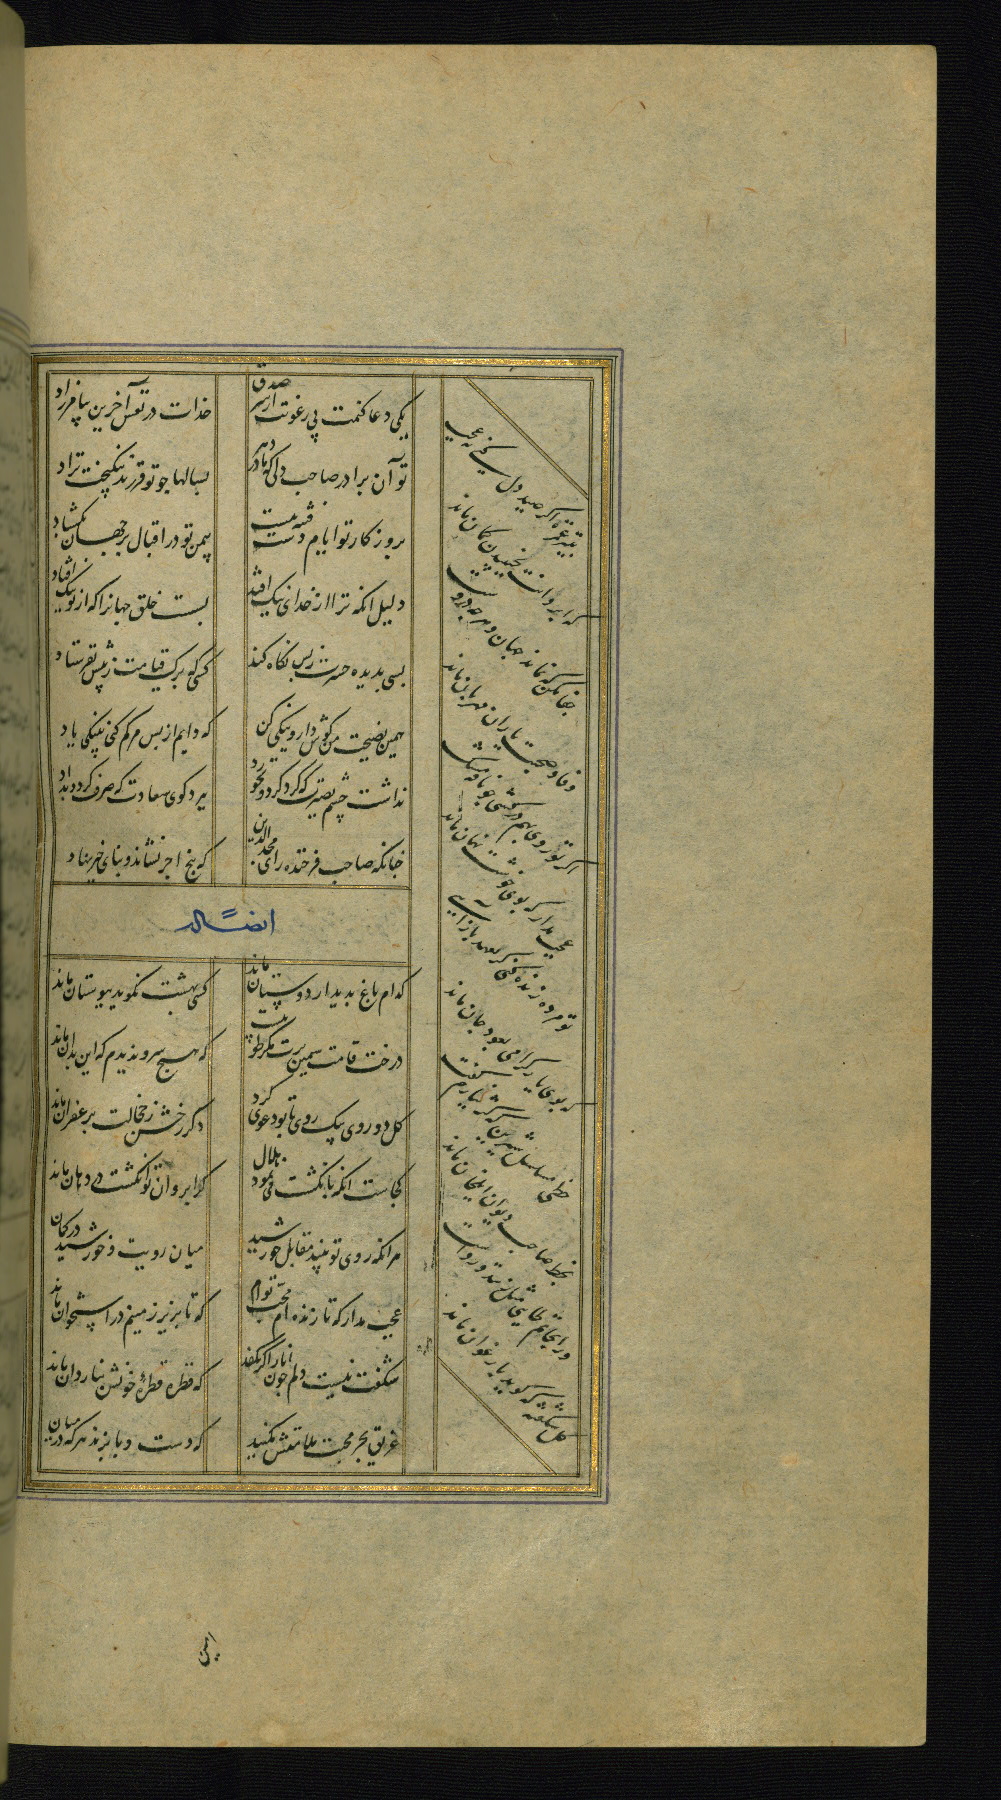 یکی دعا کنمت بی رعونت از سر صدق
خدات در نفس آخرین بیامرزاد
تو آن برادر صاحب دلی که مادر دهر
بسالها چو تو فرزند نیکبخت نزاد
بروزکار تو ایام دست فتنه ببست
بیمن تو در اقبال بر جهان بکشاد
دلیل انکه ترا از خدای نیک افتد
بست خلق جهانرا که از تو نیک افتاد
بسی بدیده حسرت ز پس نکاه کند
کسی که برک قیامت ز پیش نفرستاد
همین نصیحت من کوش دار و نیکی کن
که دایم از پس مرکم کنی بنیکی یاد
نداشت چشم بصیرت که کرد کرد و نخورد
ببرد کوی سعادت که صرف کرد و بداد
چنانکه صاحب فرخنده رای مجد الدین
که بیخ اجر نشاند و بنای خیر نهاد
ایضاً له
کدام باغ بدیدار دوستان ماند
کسی بهشت نکوید ببوستان ماند
درخت قامت سیمین برت مکر طوبیست
که هیچ سرو ندیدم که این بدان ماند
کل دو روی بیک روی با تو دعوی کرد
دکر رخش ز خجالت بزعفران ماند
کجاست انکه بانکشت می نمود هلال
کز ابروان تو انکشت در دهان ماند
هر انکه روی تو بیند مقابل خورشید
میان رویت و خورشید در کمان ماند
عجب مدار که تا زنده ام محب توام
که تا بزیر زمینم در استخوان ماند
شکفت نیست دلم چون انار اکر بکفد
که قطره قطره خونش بناردان ماند
غریق بحر محبت ملامتش مکنید
که دست و پا بزند هر که در میان
بتیر غمزه اکر صید دل کنی چه عجب
که ابروانت بخمیدن کمان ماند
جفا مکن که نماند جهان و هرچه دروست
وفا و صحبت یاران مهربان ماند
اکر تو روی بهم درکشی چو نافه مشک
عجب مدار که بوی خوشت نهان ماند
تو مرده زنده کنی کر بعهد بازآیی
که بوی یار کرامی ببود جان ماند
خطی مسلسل شیرین که کر بیارم کفت
بخط صاحب دیوان ایلخان ماند
کل شکفته که کوید بارغوان ماند